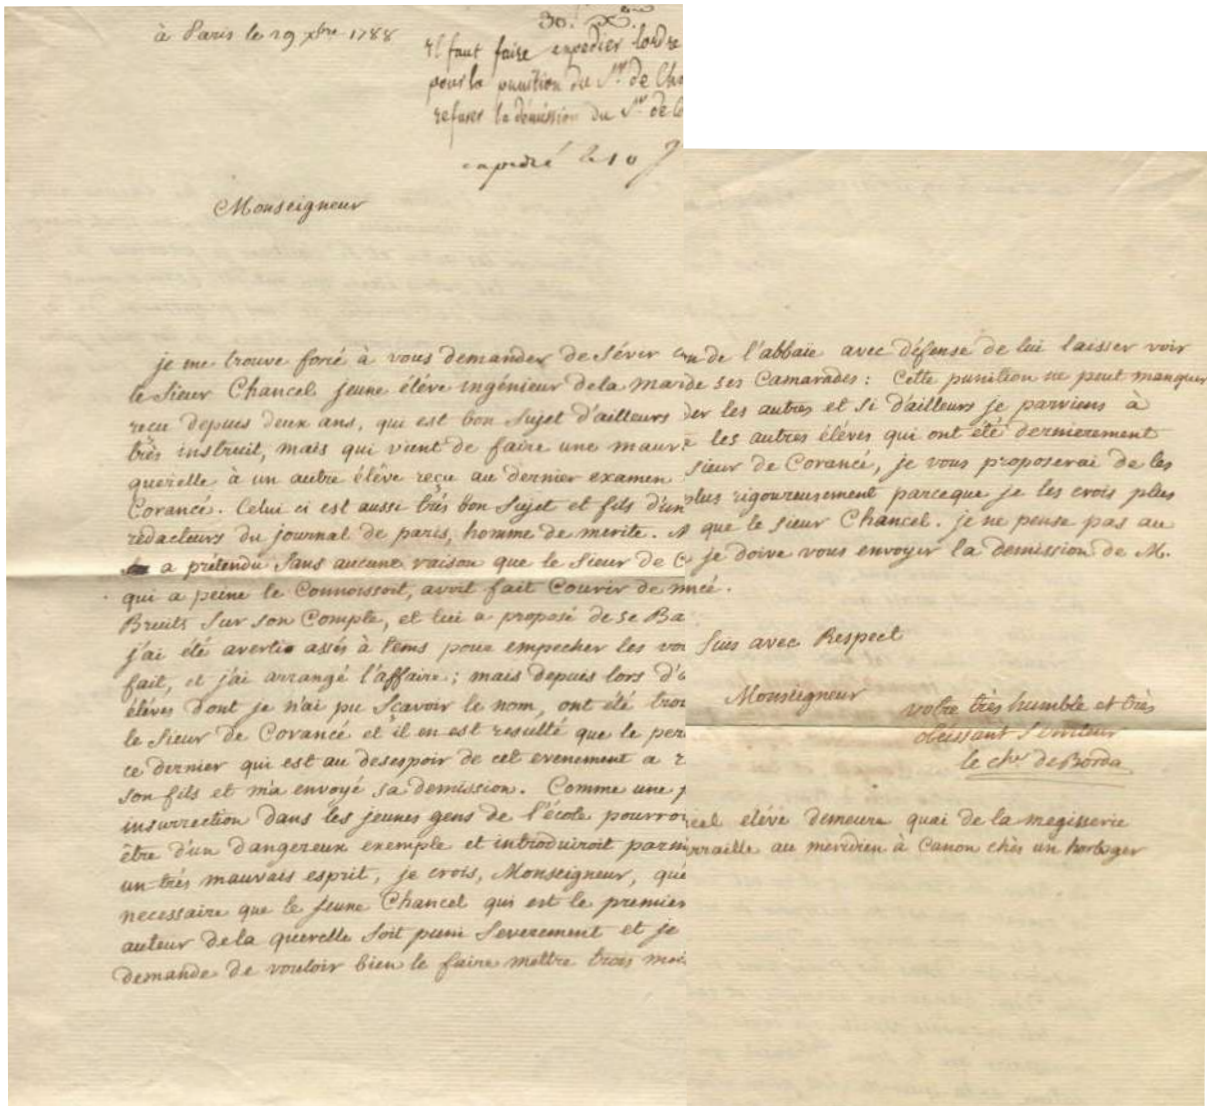 à Paris le 29 xbre 1788
30. Xbre.
il faut faire expedier lordre
pour la punition du Sr. de Cha
refuser la démission du Sr. de C
expedié le 10 J
Monseigneur
je me trouve forcé à vous demander de séver
le Sieur Chancel jeune éléve ingénieur de la ma
reçu depuis deux ans, qui est bon Sujet d'ailleurs
très instruit, mais qui vient de faire une mauv
querelle à un autre éléve reçu au dernier examen
Corancé. Celui ci est aussi très bon Sujet et fils d'un
rédacteurs du journal de paris, homme de merite.
a prétendu sans aucune raison que le Sieur de C
qui a peine le Connoissoit, avoit fait Courir de m
Bruits sur son Compte, et lui a proposé de se Ba
j'ai été averti assés à tems pour empecher les vo
fait, et j'ai arrangé l'affaire; mais depuis lors d'a
éléves dont je n'ai pu Sçavoir le nom, ont été trou
le Sieur de Corancé et il en est resulté que le per
ce dernier qui est au desespoir de cet evenement a r
son fils et m'a envoyé sa demission. Comme une p
insurrection dans les jeunes gens de l'école pourro
être d'un dangereux exemple et introduiroit parm
un très mauvais esprit, je crois, Monseigneur, que
necessaire que le jeune Chancel qui est le premier
auteur de la querelle soit puni Severement et je
demande de vouloir bien le faire mettre trois moi
de l'abbaïe avec défense de lui laisser voir
de ses Camarades: Cette punition ne peut manquer
der les autres et si d'ailleurs je parviens à
les autres éléves qui ont été dernierement
sieur de Corancé, je vous proposerai de les
plus rigoureusement parceque je les crois plus
que le sieur Chancel. je ne pense pas au
je doive vous envoyer la demission de M.
ncé.
Suis avec Respect
Monseigneur
votre très humble et très
obeissant Serviteur
le chr. de Borda
cel elévé demeure quai de la megisserie
rraille au meridien à Canon chés un horloger